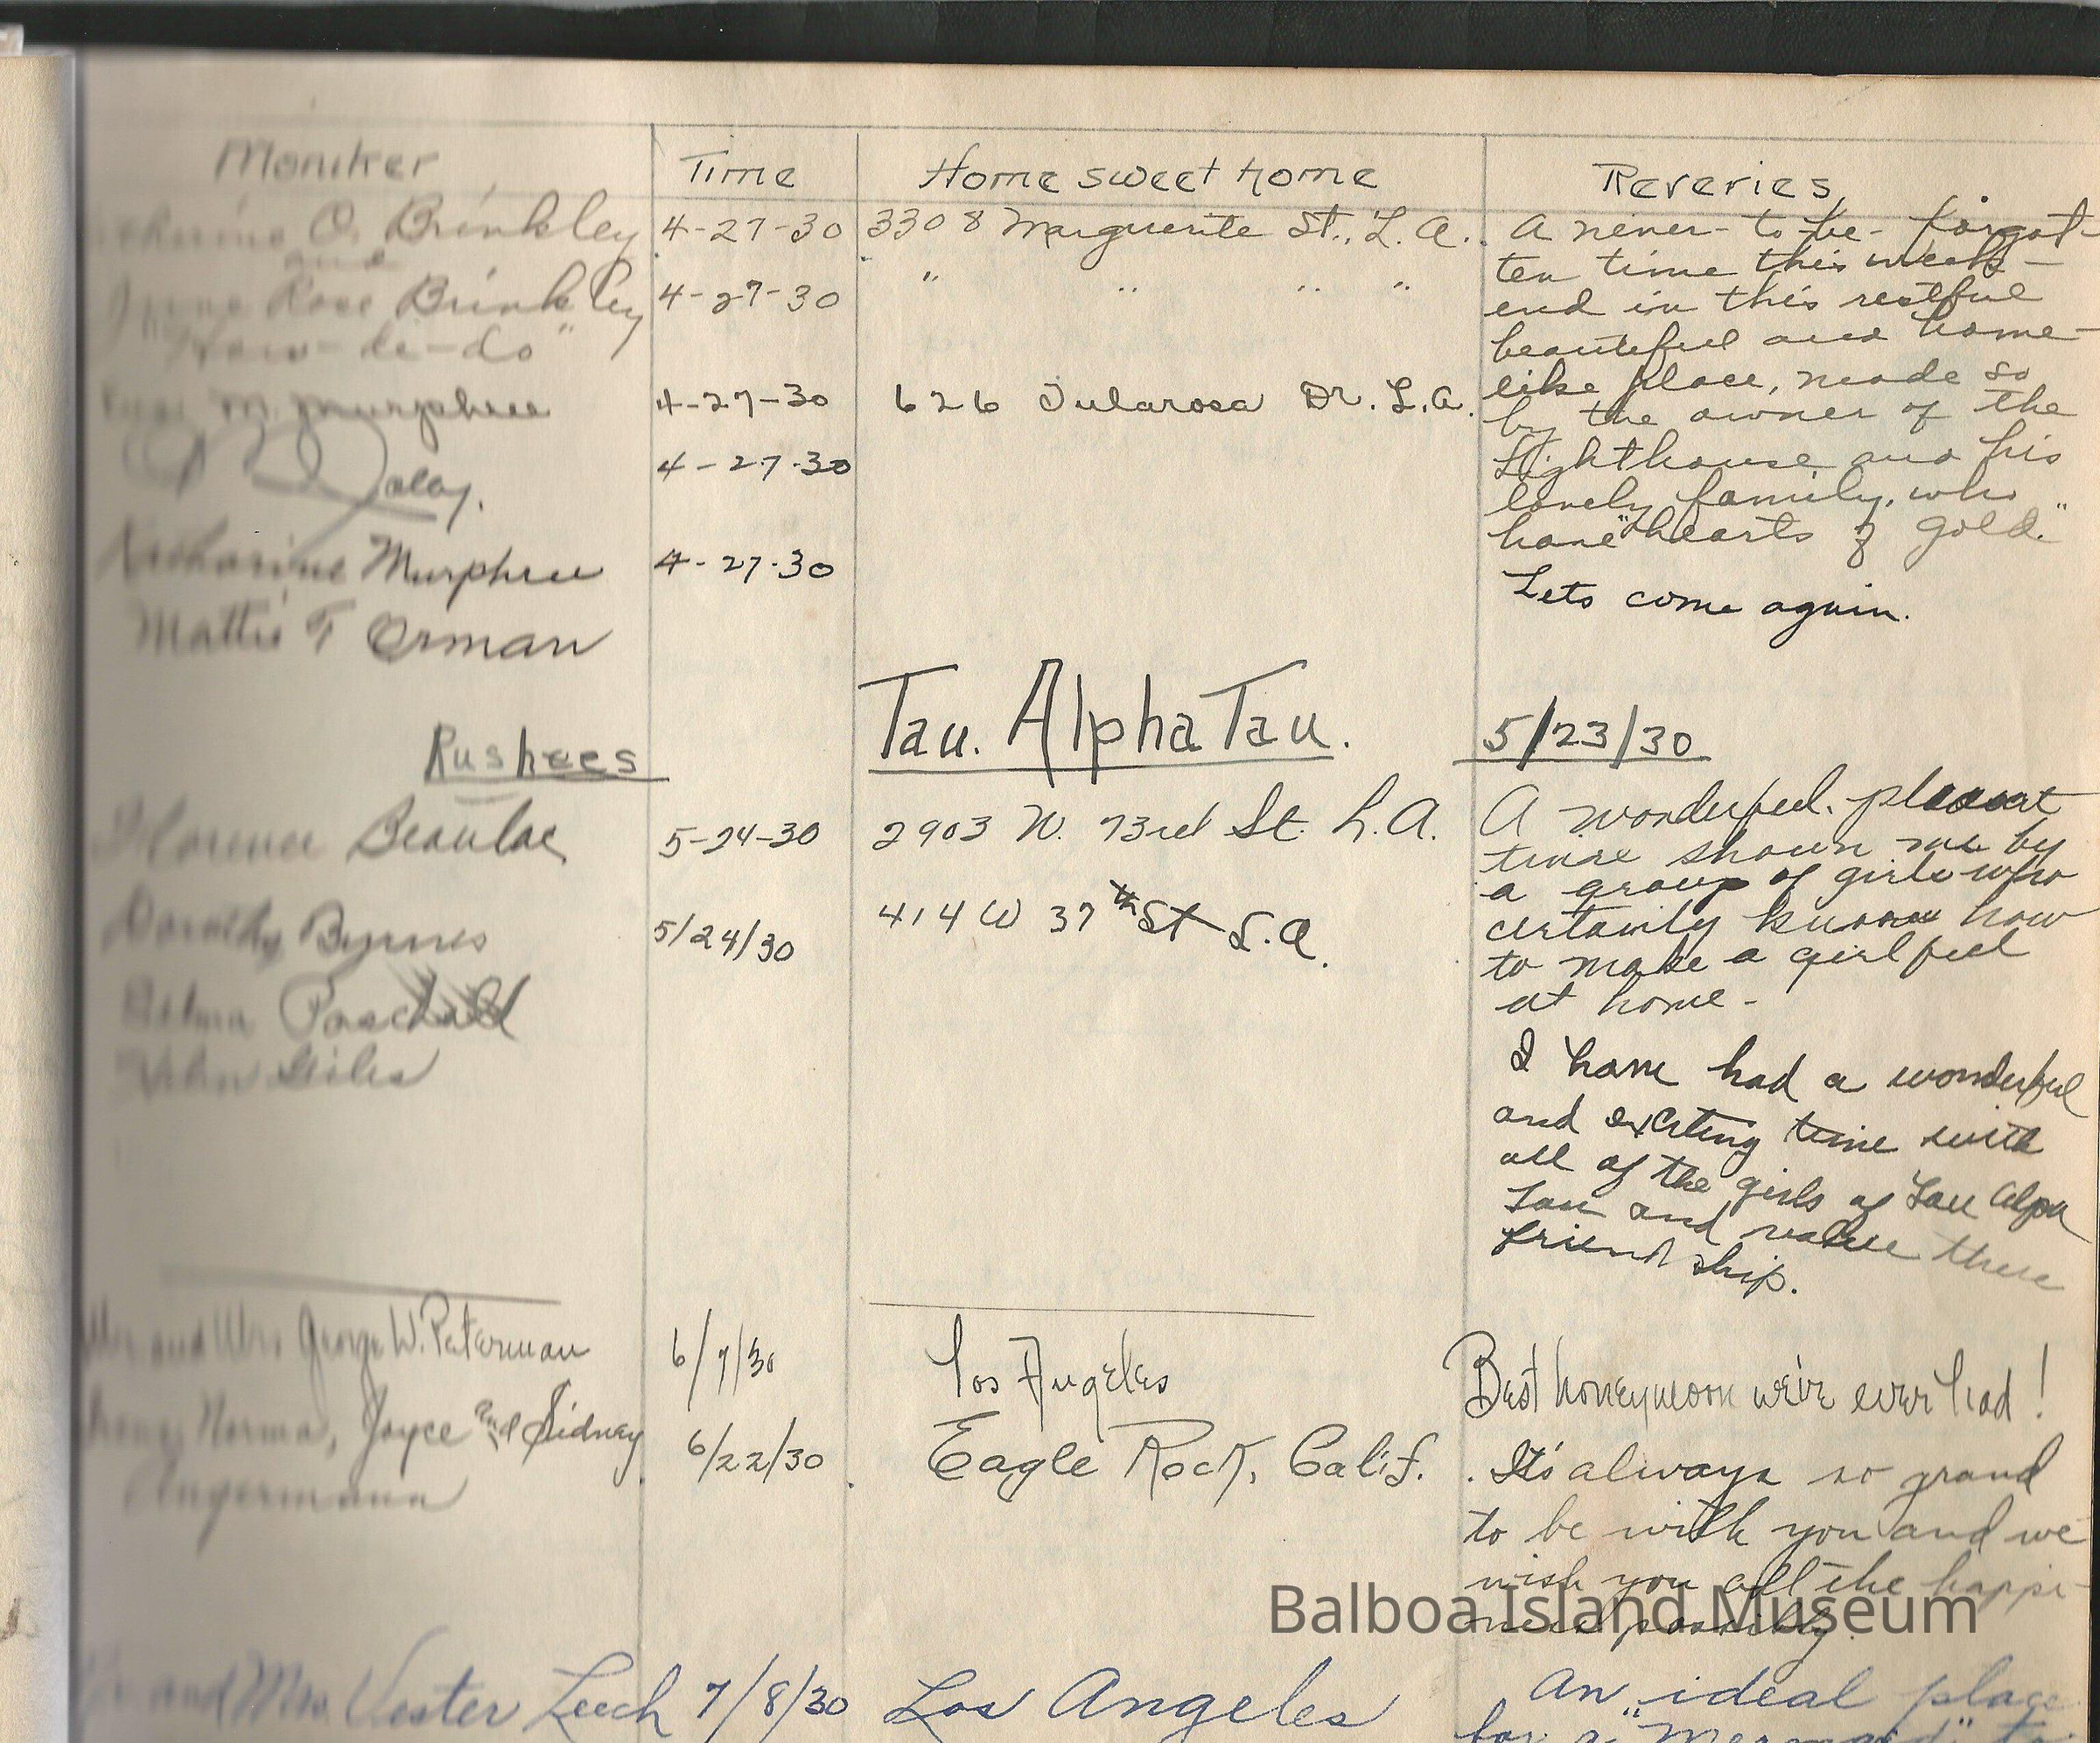 Moniker Time Home sweet home Reveries
O. Brinkley 4-27-30 3308 Marguerite St., L. A. A never-to-be-forgot-
and ten time this week-
Rose Brinkley 4-27-30 " " " " end in this restful
"How-de-do" beautiful and home-
M. Murphree 4-27-30 626 Tularosa Dr. L.A. like place, made so
by the owner of the
4-27-30 Lighthouse and his
lovely family, who
have "hearts of gold."
Katharine Murphree 4-27-30
Lets come again.
Mattie T Orman
Tau. Alpha Tau. 5/23/30
Rushees
Florence Beaulac 5-24-30 2903 W. 73rd St. L.A. A wonderful. pleasant
time shown me by
a group of girls who
Dorothy Byrnes 5/24/30 414 W 37th St L.A. certainly know how
to make a girl feel
at home-
Paschall
I have had a wonderful
and exciting time with
all of the girls of Tau Alpa
Tau and value there
friendship.
Mr and Mrs George W. Paterman 6/7/30 Los Angeles Best honeymoon we've ever had!
Norma, Joyce and Sidney 6/22/30 Eagle Rock, Calif. It's always so grand
Angermann to be with you and we
wish you all the happi-
ness possibly.
Balboa Island Museum
and Mrs. Vester Leech 7/8/30 Los Angeles An ideal place
for a "Mermaid" to